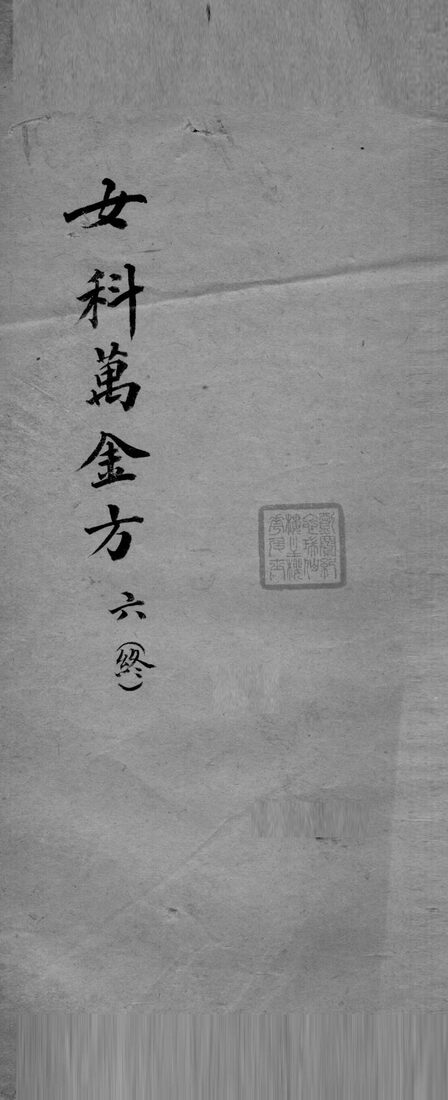 女科萬金方 六（終）